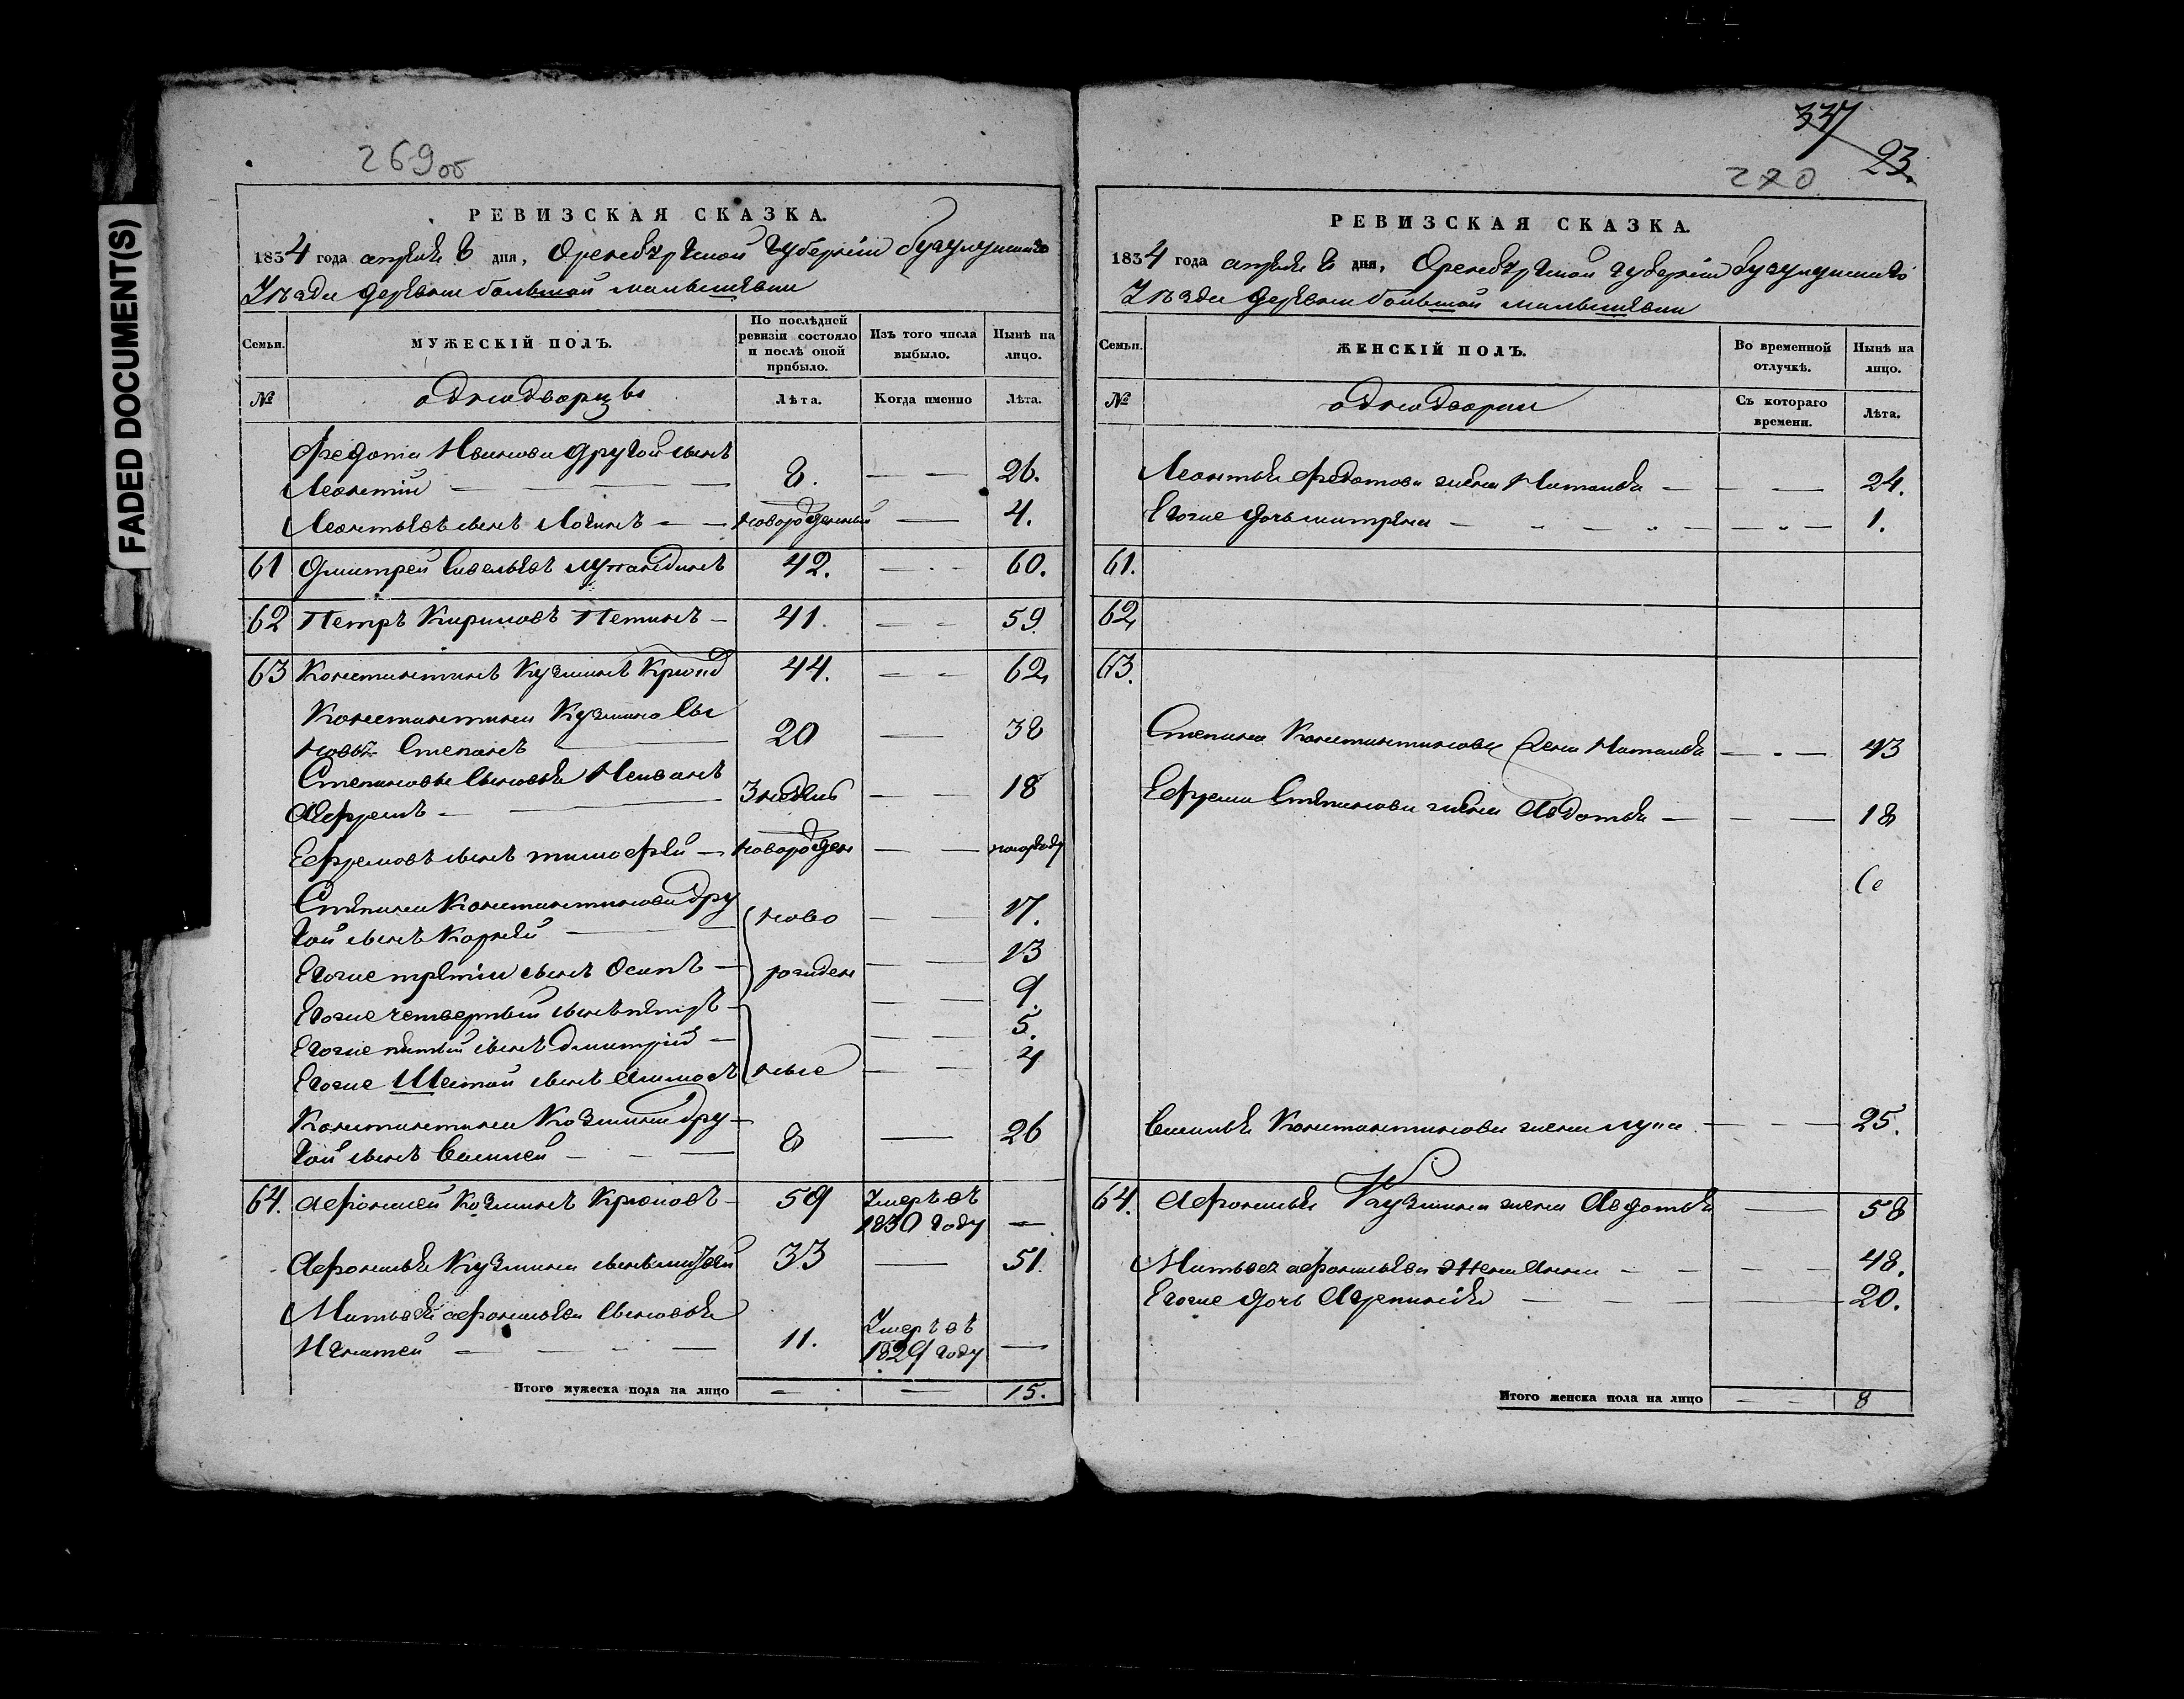 FADED DOCUMENT(S)
269 об
РЕВИЗСКАЯ СКАЗКА.
1834 года апреля 8 дня, Оренбургской губернии Бугульминского
Уезда деревни большой
Семьи.
МУЖЕСКІЙ ПОЛЪ.
По послѣдней ревизіи состояло и послѣ оной прибыло.
Изъ того числа выбыло.
Нынѣ на лицо.
№
однодворцы
Лѣта.
Когда именно
Лѣта.
Федота Иванова другой сынъ
Леонтий — 8. — 26.
Леонтьевъ сынъ Логинъ — новорожденный — 4.
61 Дмитрей Савельевъ — 42. — 60.
62 Петръ Кириловъ Петинъ — 41. — 59.
63 Константинъ Кузминъ Крюков 44. — 62.
Константина Кузмина сы
новья Степанъ 20 — 38
Степановы сыновья
Ефремъ — — 18
Ефремовъ сынъ тимофей — новорожден — полгоду
Степана Константинова дру
гой сынъ Корней — ново — 17.
Егоже третий сынъ Осипъ — рожден — 13
Егоже четвертый сынъ петръ — 9.
Егоже пятый сынъ дмитрий — 5.
Егоже Шестой сынъ — ные — 4
Константина Козмина дру-
гой сынъ Василей — 8 — 26
64. Афонасей Козминъ Крюковъ — 59 Умеръ въ 1830 году —
Афонасья Кузмина сынъ матвей 33 — 51
Матвея афонасьева сыновья
Игнатей — 11. Умеръ въ 1829 году —
Итого мужеска пола на лицо — — 15.
347
23.
270
РЕВИЗСКАЯ СКАЗКА.
1834 года апреля 8 дня, Оренбургской губернии Бугульминского
Уезда деревни большой
Семьи.
ЖЕНСКІЙ ПОЛЪ.
Во временной отлучкѣ.
Нынѣ на лицо.
№
однодворки
Съ котораго времени.
Лѣта.
Леонтья Федотова жена Наталья — 24.
Егоже дочь матрена — 1.
61.
62.
63.
Степана Константинова жена Наталья — 43
Ефрема Степанова жена Авдотья — 18
Василья Константинова жена — 25.
64. Афонасья Кузмина жена Авдотья — 58
Матвея афонасьева жена Анна — 48.
Егоже дочь — 20.
Итого женска пола на лицо — — 8